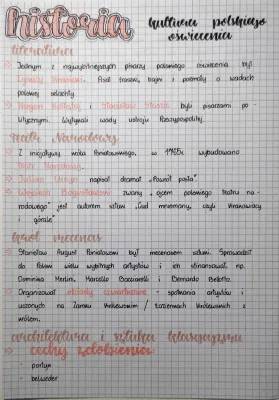 historia kultura polskiego
oświecenia
literatura
Jednym z najwybitniejszych pisarzy polskiego oświecenia był
Ignacy Krasicki. Pisał fraszki, bajki i poematy o wadach
polskiej szlachty
Hugon Kołłątaj i Stanisław Staszic byli pisarzami po-
litycznymi. Wytykali wady ustroju Rzeczypospolitej
Teatr Narodowy
Z inicjatywy króla Poniatowskiego, w 1765r. wybudowano
Teatr Narodowy.
Julian Ursyn napisał dramat „Powrót posła”
Wojciech Bogusławski zwany „ojcem polskiego teatru na-
rodowego” jest autorem sztuki „Cud mniemany, czyli Krakowiacy
i górale”
król mecenas
Stanisław August Poniatowski był mecenasem sztuki. Sprowadzał
do Polski wielu wybitnych artystów i ich sfinansował np.
Dominika Merlini, Marcello Bacciarelli i Bernardo Bellotto.
Organizował obiady czwartkowe - spotkania artystów i
uczonych na Zamku Królewskim / Łazienkach Królewskich z
królem.
architektura i sztuka klasycyzmu
cechy zdobienia:
- portyk
- belweder